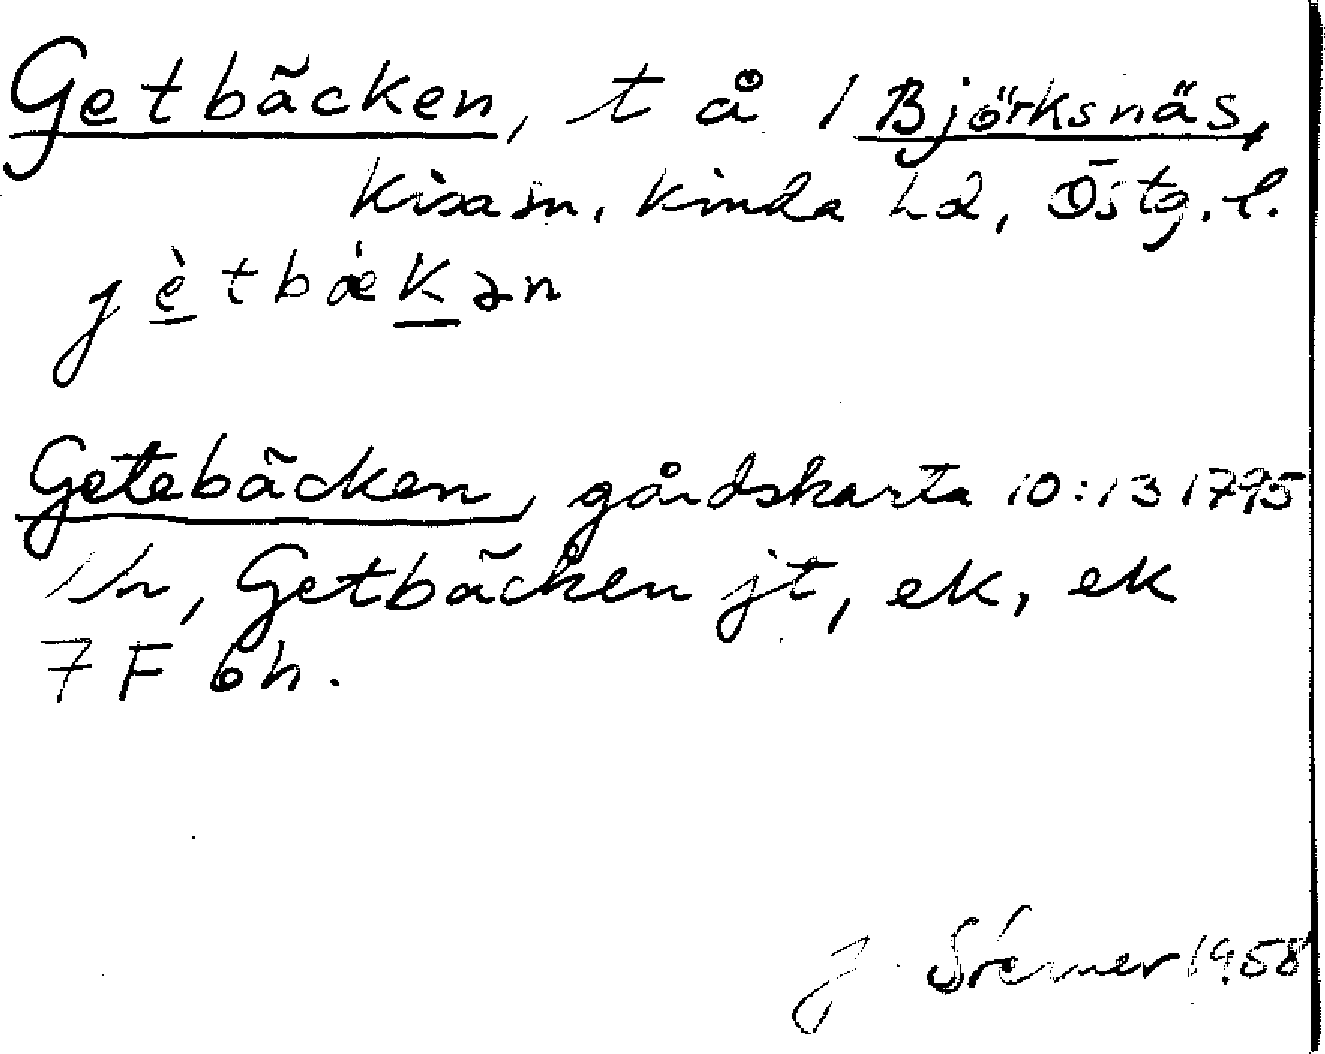 Getbäcken, t å / Björksnäs,
Kisa sn, Kinda hd, Östg. l.
jètbǽkən
Getebäcken, gårdskarta 10:13 1795
1/2, Getbäcken jt, ek, ek
7 F 6 h.
J. Sréner 1958